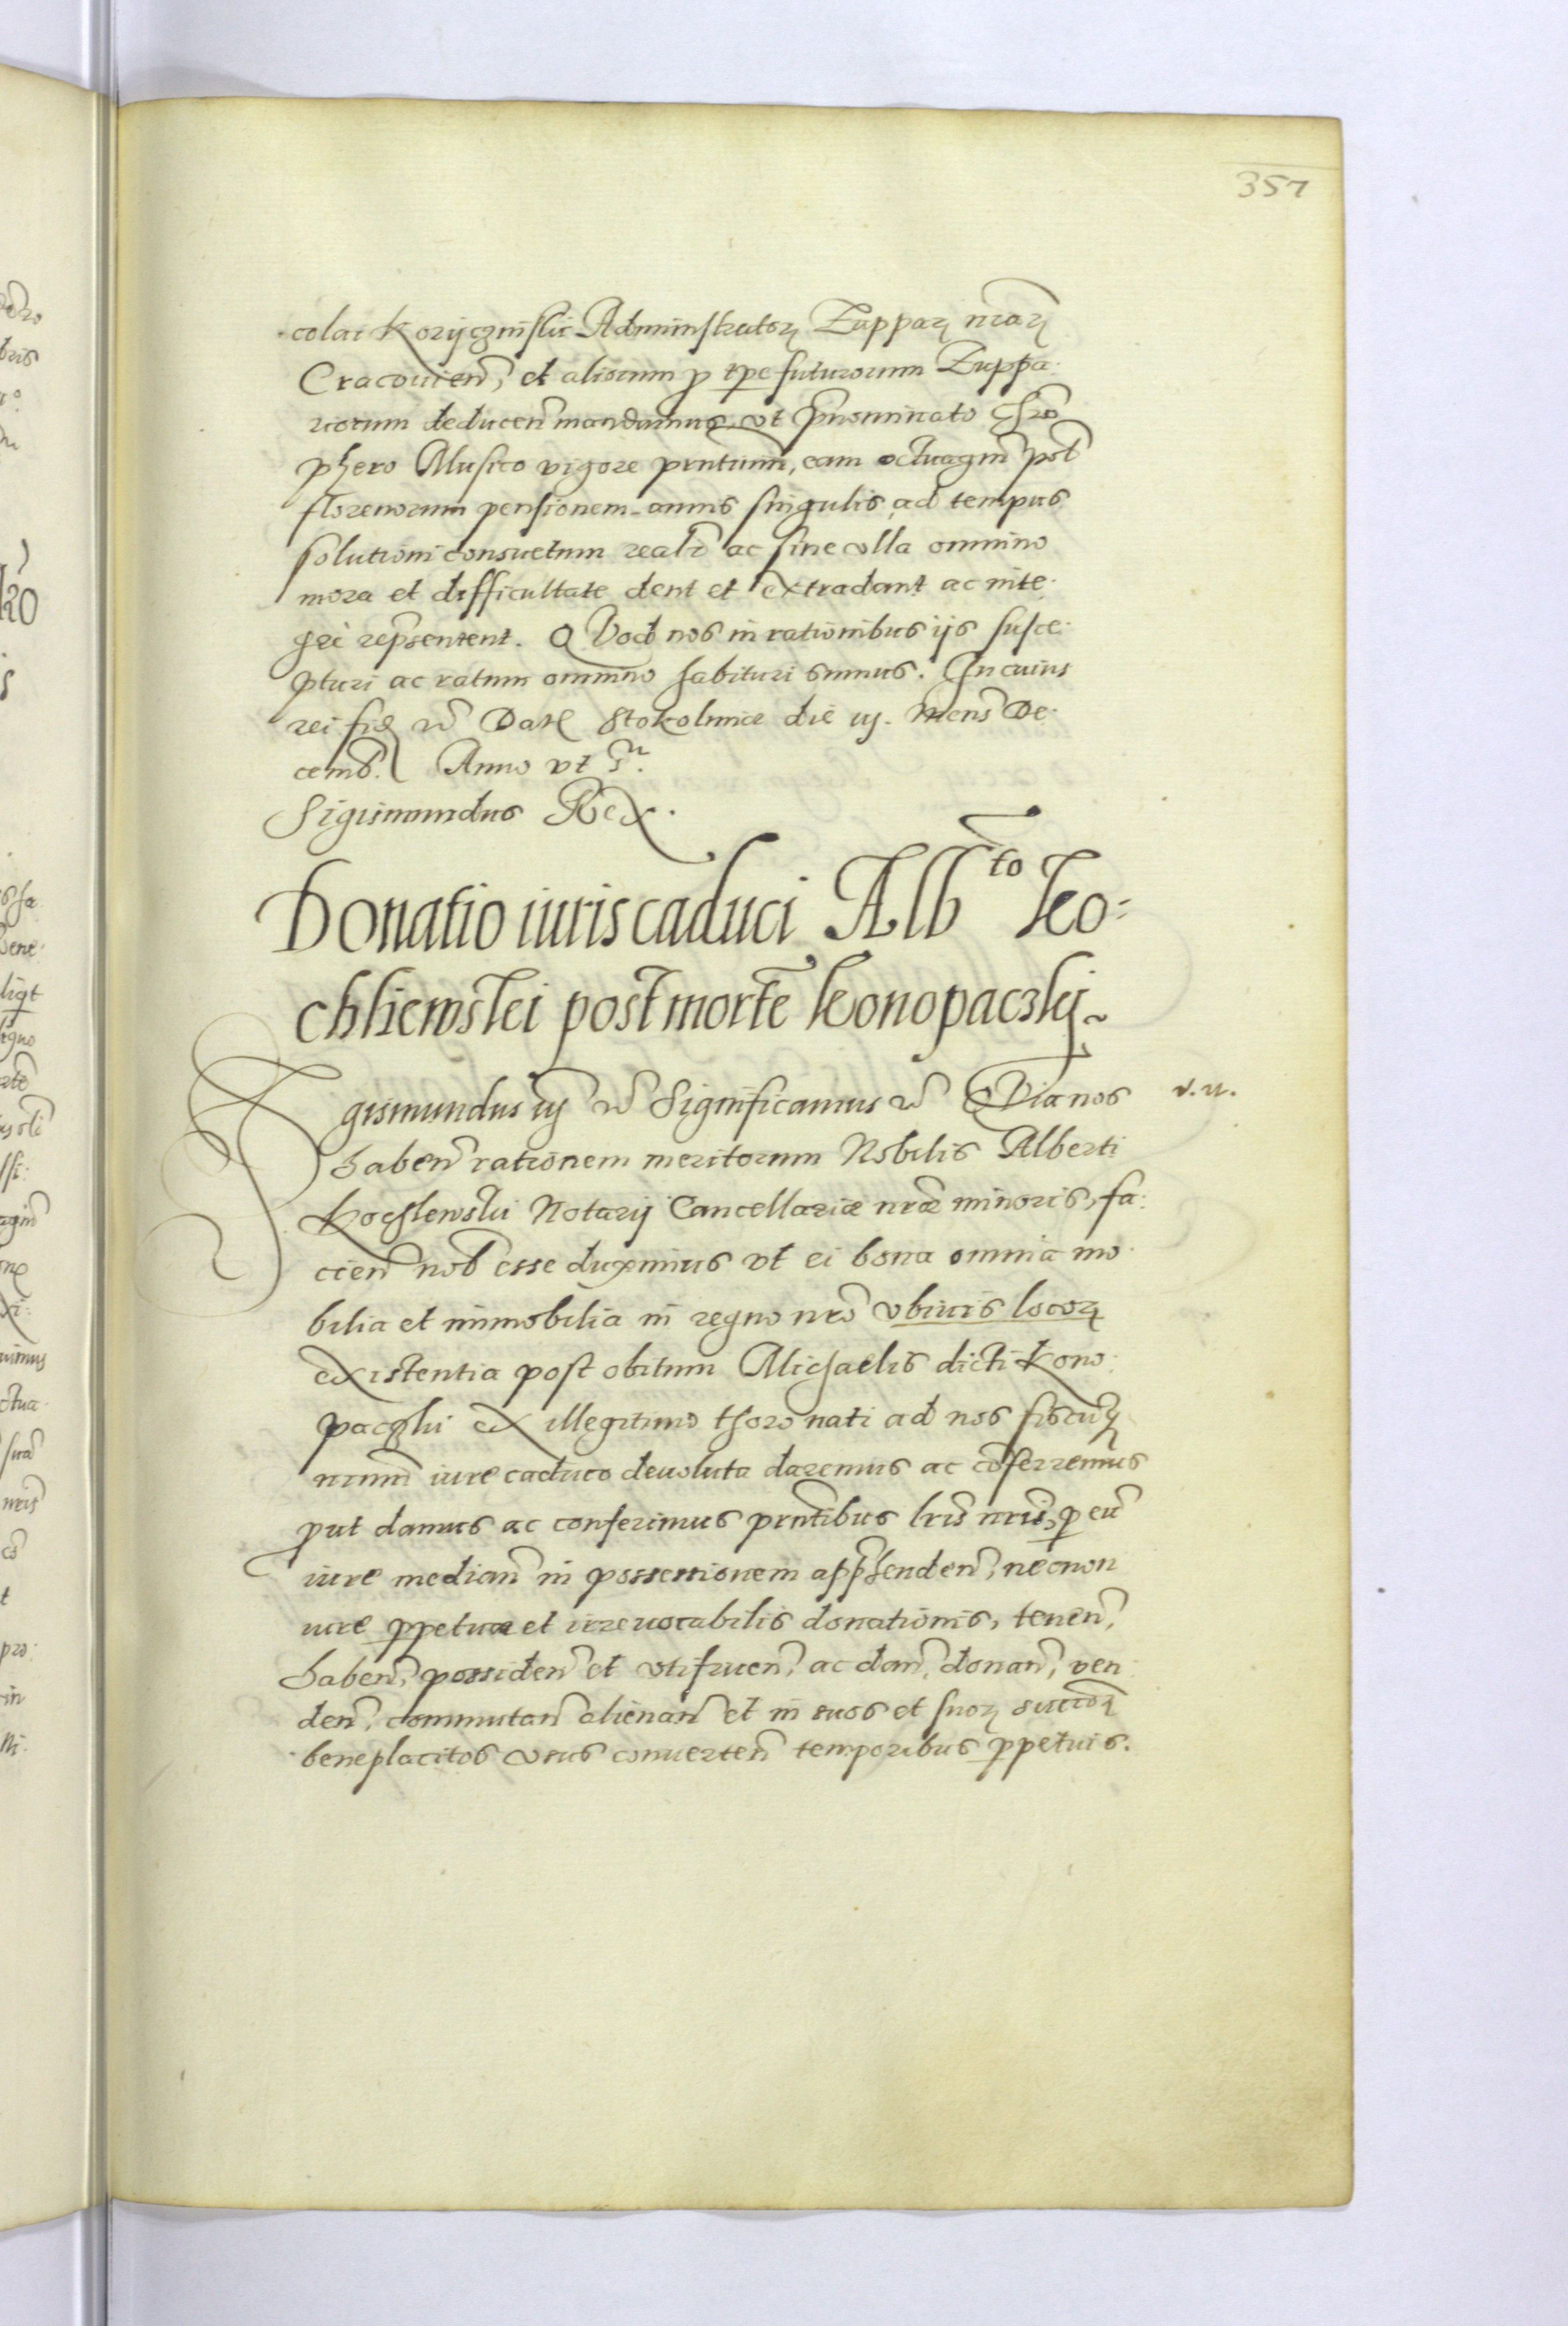 357
colai Koryczinskii Administratoꝝ Zupparꝝ nr̃arꝝ
Cracouien̄, et aliorum ꝓ tp̄e futurorum Zuppa:
riorum deducen̄ mandamus, vt p̄nominato Chr̄o
phero Musico vigore prn̄tium, eam octuagin̄ pol̄
florenorum pensionem annis singulis ad tempus
solutioni consuetum real̄r ac sine vlla omnino
mora et difficultate dent et extradant ac inte:
gre rep̄sentent. QVod nos in rationibus ijs susce:
pturi ac ratum omnino habituri sumus. In cuius
rei fid̄ etc̄ Dat̄ Stokolmiæ die iij. Mens̄ De:
cemb̄. Anno vt sr̃.
Sigismundus Rex.
Donatio iuris caduci Alb̄to Ko:
chliewskei post mortē Konopaczkij
Sigismundus iij etc̄ Significamus etc̄ QVia nos
v. u.
haben̄ rationem meritorum Nobilis Alberti
Kochlewskii Notarij Cancellariæ nr̄æ minoris, fa:
cien̄ nob̄ esse duximus vt ei bona omnia mo:
bilia et immobilia in regno nr̄o vbiuis locoꝝ
existentia post obitum Michaelis dicti Kono:
paczkii ex illegitimo thoro nati ad nos fiscumꝗ
nrum̄ iure caduco deuoluta daremus ac cōferremus
ꝓut damus ac conferimus prn̄tibus lr̄is nr̄is, ꝑ eū
iure median̄ in possessionem app̄henden̄, necnon
iure ꝑpetuæ et irreuocabilis donationis, tenen̄,
haben̄, possiden̄ et vtifruen̄, ac dan̄, donan̄, ven
den̄, commutan̄ alienan̄ et in suos et suoꝝ succōꝝ
beneplacitos vsus conuerten̄ temporibus ꝑpetuis.